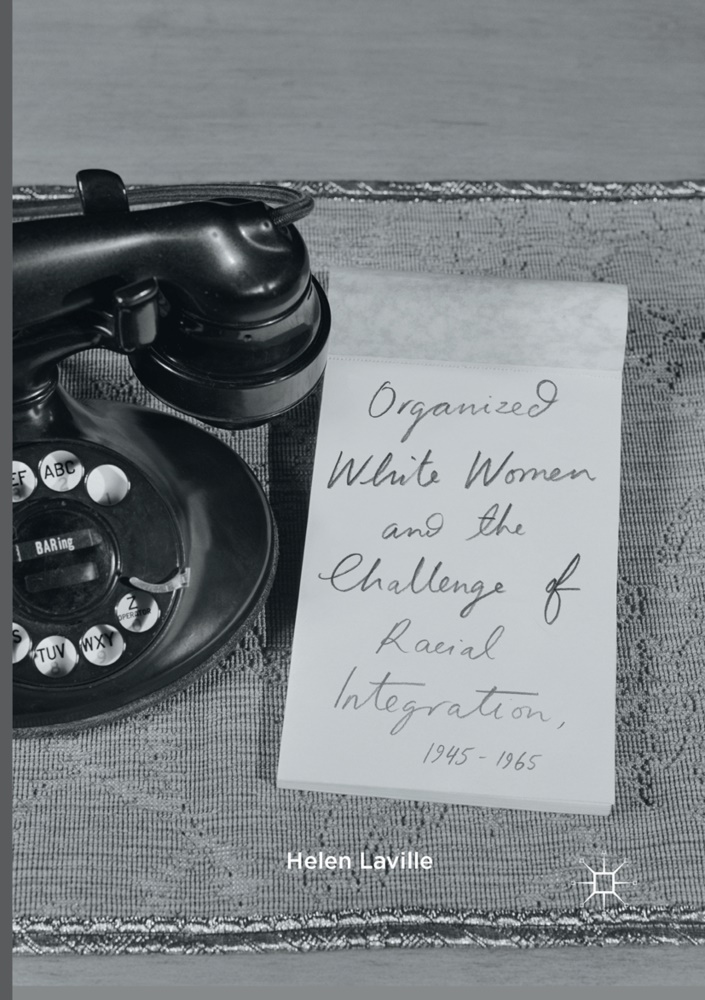 Organized
White Women
and the
Challenge of
Racial
Integration,
1945 - 1965
EF
ABC
2
1
BARing
Z
OPERATOR
S
TUV
8
WXY
9
Helen Laville